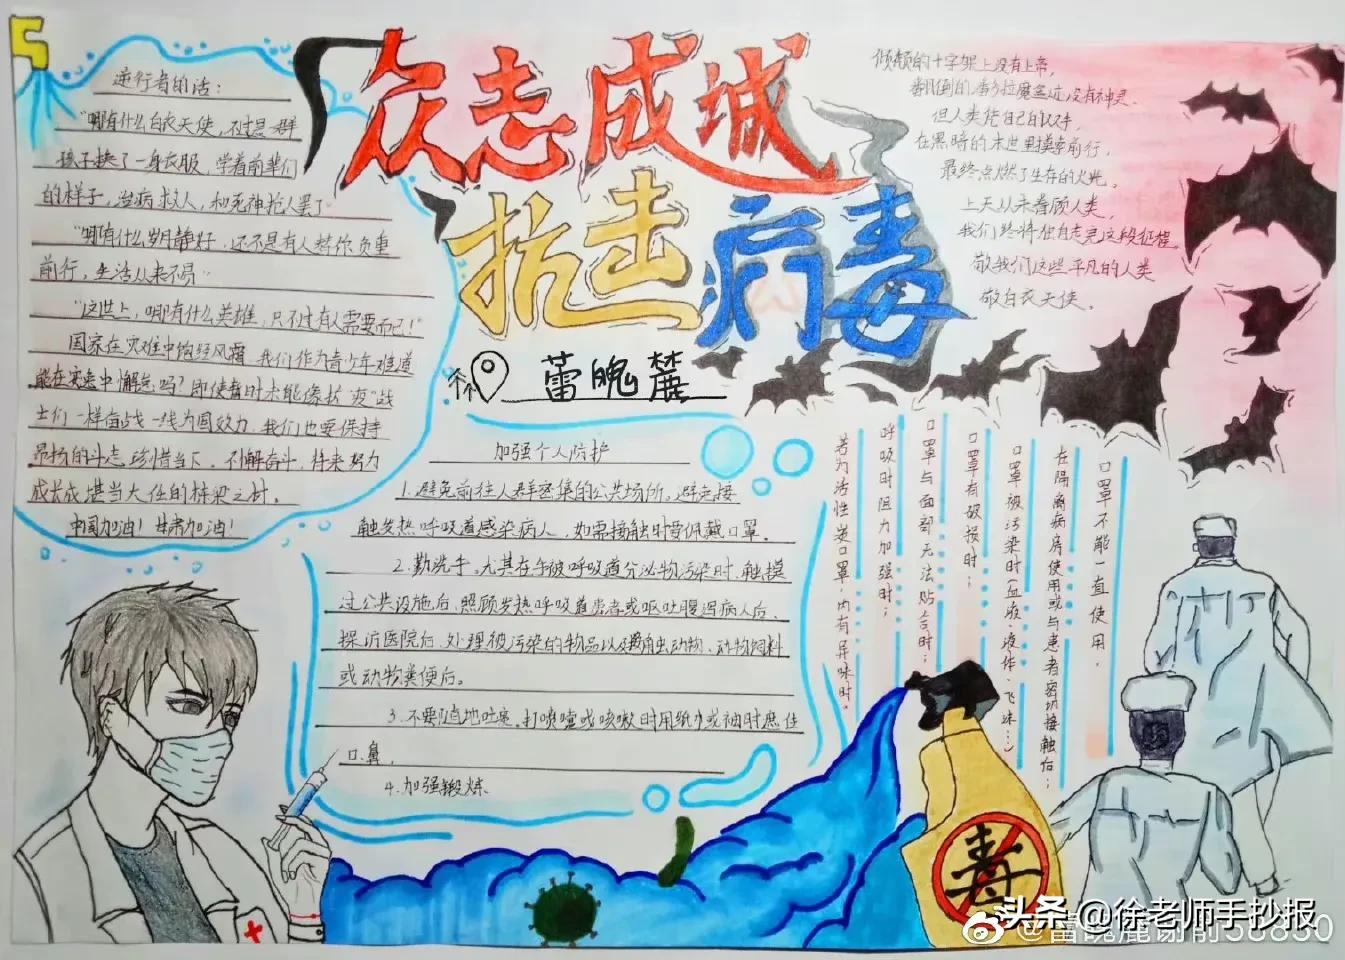 众志成城
抗击病毒
蕾魄麓
逆行者的话：
“哪有什么白衣天使，不过是一群
孩子换了一身衣服，学着前辈们
的样子，治病救人，和死神抢人罢了”
“哪有什么岁月静好，还不是有人替你负重
前行，生活从来不易”
“这世上，哪有什么英雄，只不过有人需要而已！”
国家在灾难中饱经风霜，我们作为青少年难道
能在安逸中懈怠吗？即使暂时未能像抗“疫”战
士们一样奋战一线为国效力，我们也要保持
昂扬的斗志，珍惜当下，不懈奋斗，将来努力
成长成堪当大任的栋梁之材。
中国加油！甘肃加油！
倾颓的十字架上没有上帝，
翻倒的潘多拉魔盒边没有神灵。
但人类凭自己的双手，
在黑暗的末世里摸索前行，
最终点燃了生存的火光。
上天从未眷顾人类，
我们终将独自走完这段征程
敬我们这些平凡的人类
敬白衣天使。
加强个人防护
1.避免前往人群密集的公共场所。避免接
触发热呼吸道感染病人，如需接触时要佩戴口罩。
2.勤洗手。尤其在手被呼吸道分泌物污染时、触摸
过公共设施后、照顾发热呼吸道患者或呕吐腹泻病人后、
探访医院后、处理被污染的物品以及动物、动物饲料
或动物粪便后。
3.不要随地吐痰，打喷嚏或咳嗽时用纸巾或袖肘遮住
口、鼻，
4.加强锻炼
口罩不能一直使用，
在隔离病房使用或与患者密切接触后；
口罩被污染时（血液、液体、飞沫…）
口罩有破损时；
口罩与面部无法贴合时；
呼吸时阻力加强时；
若为活性炭口罩，内有异味时。
毒
头条 @徐老师手抄报